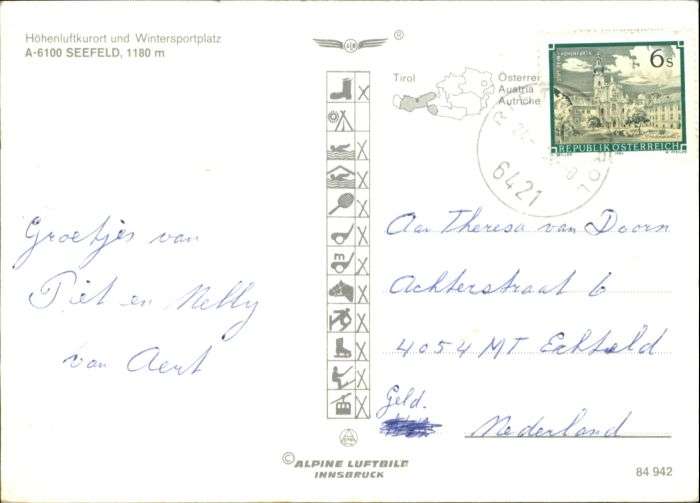 Höhenluftkurort und Wintersportplatz
A-6100 SEEFELD, 1180 m
®
Tirol
Österrei
Austria
Autriche
6s
REPUBLIK ÖSTERREICH
6421
Groetjes van
Piet en Nelly
van Aert
Aan Theresa van Doorn
Achterstraat 6
4054 MT Echteld
Geld.
Nederland
© ALPINE LUFTBILD
INNSBRUCK
84 942